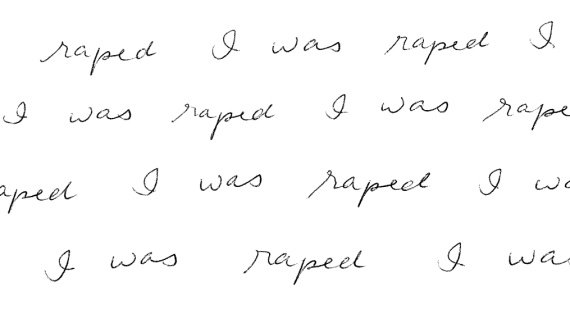 raped I was raped I
I was raped I was rape
aped I was raped I wa
I was raped I was